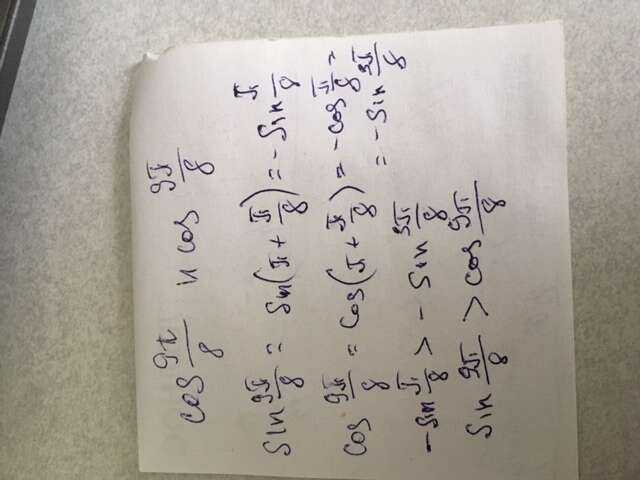 cos 9π/8 и cos 9π/8
sin 9π/8 = sin(π + π/8) = -sin π/8
cos 9π/8 = cos(π + π/8) = -cos π/8 =
= -sin 3π/8
-sin π/8 > -sin 3π/8
sin 9π/8 > cos 9π/8